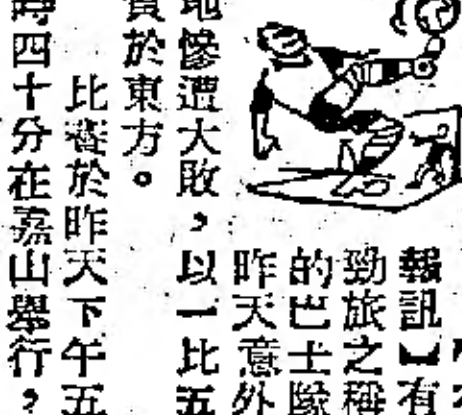 報訊】有
勁旅之稱
的巴士隊
昨天意外
地慘遭大敗，以一比五
負於東方。
比賽於昨天下午五
時四十分在嘉山舉行，